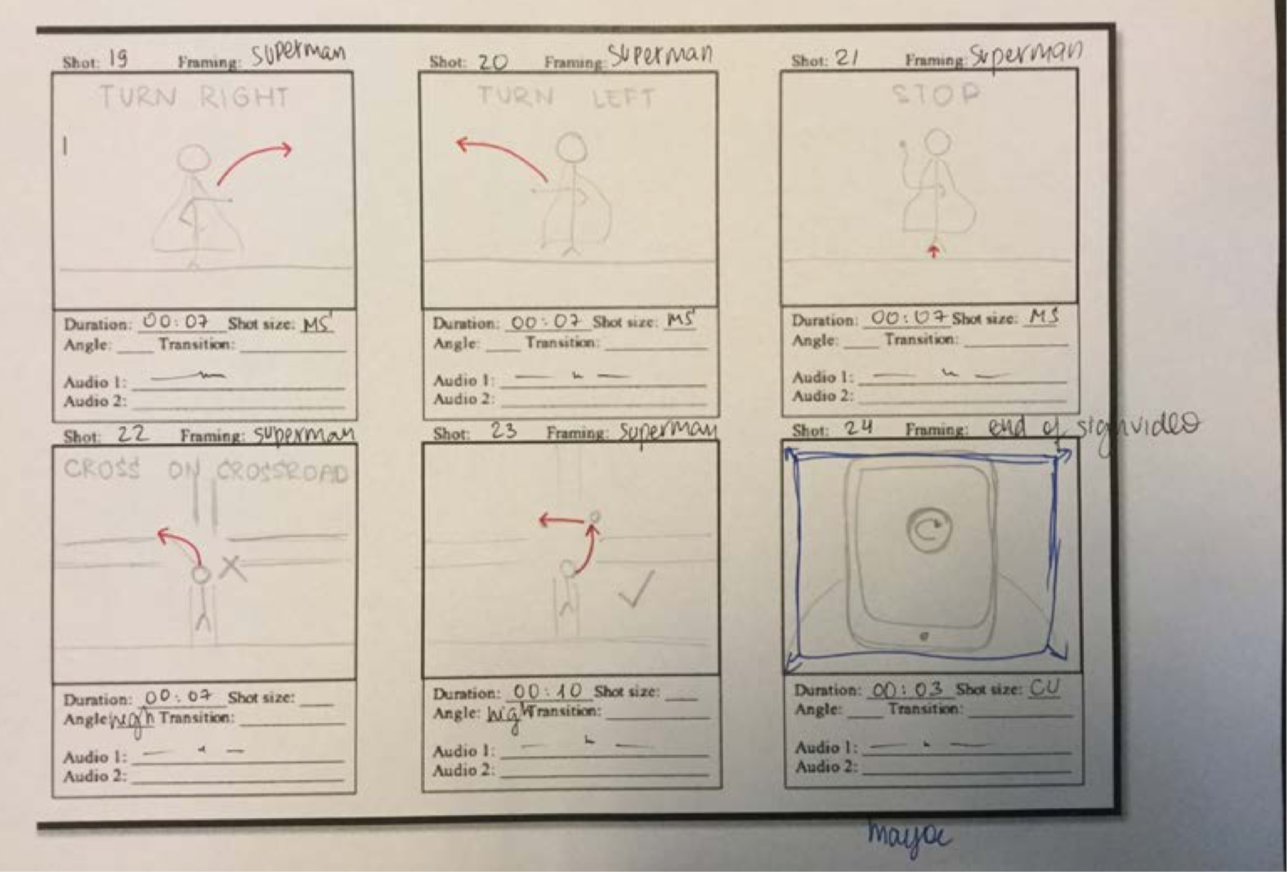 Shot: 19 Framing: Superman
TURN RIGHT
Duration: 00:07 Shot size: MS
Angle: Transition:
Audio 1:
Audio 2:
Shot: 20 Framing: Superman
TURN LEFT
Duration: 00:07 Shot size: MS
Angle: Transition:
Audio 1:
Audio 2:
Shot: 21 Framing: Superman
STOP
Duration: 00:07 Shot size: MS
Angle: Transition:
Audio 1:
Audio 2:
Shot: 22 Framing: superman
CROSS ON CROSSROAD
Duration: 00:07 Shot size:
Angle: high Transition:
Audio 1:
Audio 2:
Shot: 23 Framing: superman
Duration: 00:10 Shot size:
Angle: high Transition:
Audio 1:
Audio 2:
Shot: 24 Framing: end of sign video
Duration: 00:03 Shot size: CU
Angle: Transition:
Audio 1:
Audio 2: